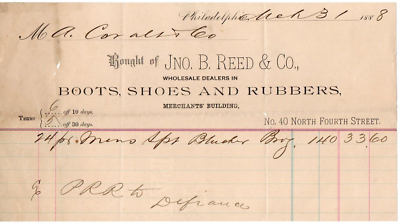 Philadelphia, Mch 31 1888
M A. Coralts Co
Bought of JNO. B. REED & CO.,
WHOLESALE DEALERS IN
BOOTS, SHOES AND RUBBERS,
MERCHANTS' BUILDING,
TERMS off 10 days.
off 30 days.
No. 40 NORTH FOURTH STREET.
24/ps Mens Spt Blucher Brog 140 33.60
PRR to
Defiance